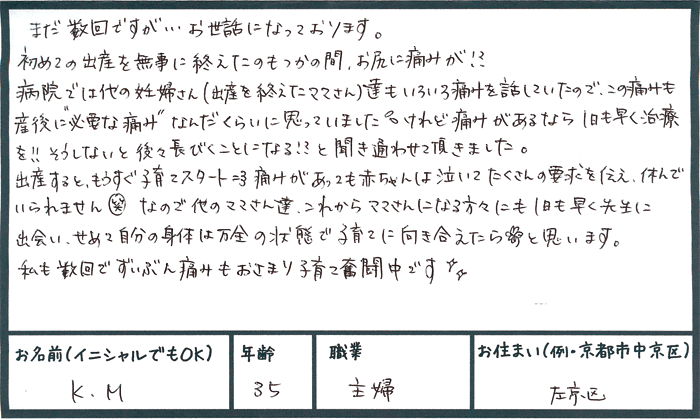 まだ数回ですが… お世話になっております。
初めての出産を無事に終えたのもつかの間、お尻に痛みが!?
病院では他の妊婦さん(出産を終えたママさん)達もいろいろ痛みを話していたので、この痛みも
産後に"必要な痛み"なんだくらいに思っていました けれど痛みがあるなら1日も早く治療
を!! そうしないと後々長びくことになる!?と聞き通わせて頂きました。
出産すると、もうすぐ子育てスタート 痛みがあっても赤ちゃんは泣いてたくさんの要求を伝え、休んで
いられません なので他のママさん達、これからママさんになる方々にも1日も早く先生に
出会い、せめて自分の身体は万全の状態で子育てに向き合えたら と思います。
私も数回でずいぶん痛みもおさまり子育て奮闘中です☆☆
お名前(イニシャルでもOK) 年齢 職業 お住まい(例・京都市中京区)
K.M 35 主婦 左京区